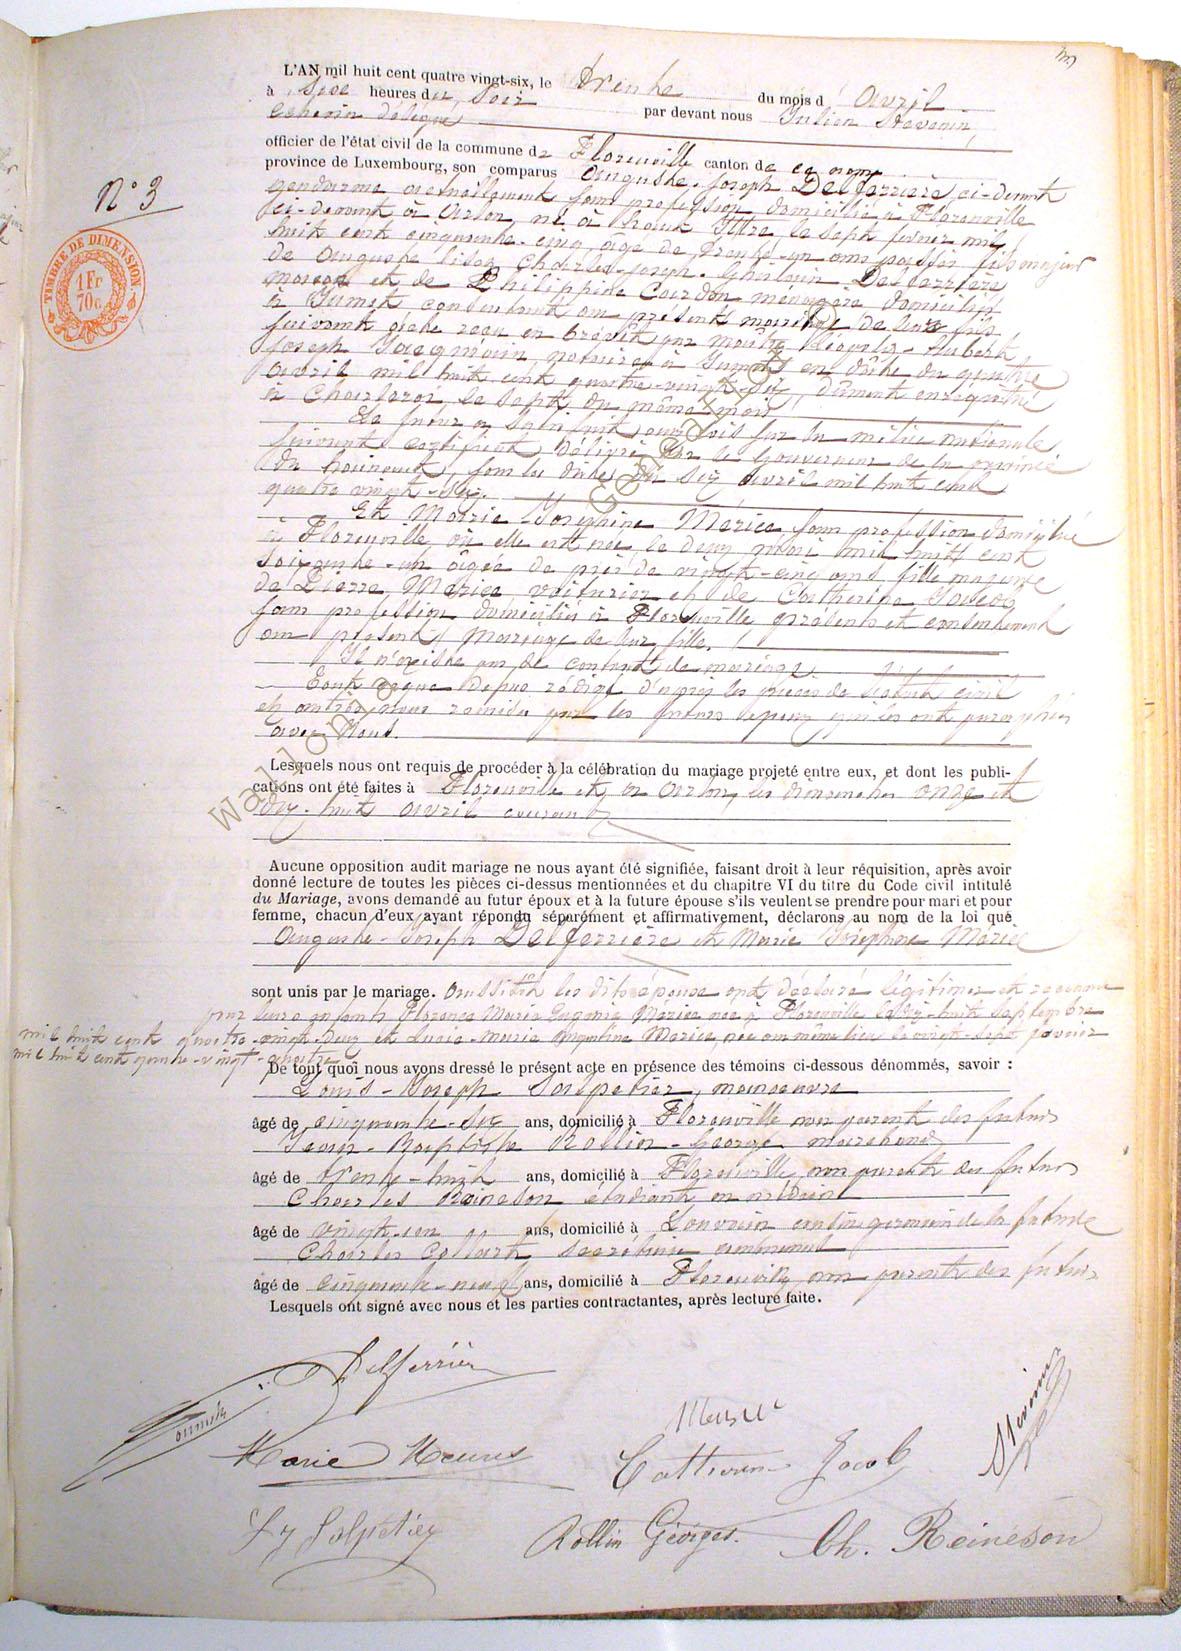 N° 3
TIMBRE DE DIMENSION
1 Fr
70c.
L'AN mil huit cent quatre vingt-six, le trente du mois d'avril
à six heures du soir par devant nous Julien Stevenin,
échevin délégué
officier de l'état civil de la commune de Florenville canton de ce nom
province de Luxembourg, son comparus Auguste-Joseph Delferrière ci-devant
gendarme actuellement sans profession domicilié à Florenville
ci-devant à Arlon, né à Haut Ittre le sept février mil
huit cent cinquante-cinq, âgé de trente-un ans passés fils majeur
de Charles-Joseph-Ghislain Delferrière
et de Philippine Courdon ménagère domiciliés
à Jumet consentant au présent mariage de leur fils
suivant acte reçu en brevet par maître Léopold-Hubert
Joseph notaire à Jumet en date du quatre
avril mil huit cent quatre-vingt-six, dûment enregistré
à Charleroi le sept du même mois.
Le futur a satisfait aux lois sur la milice nationale
suivant certificat délivré par le Gouverneur de la province
du Hainaut, sous la date du six avril mil huit cent
quatre vingt-six.
Et Marie-Joséphine Mérice sans profession domiciliée
à Florenville où elle est née le deux mai mil huit cent
soixante-un âgée de près de vingt-cinq ans fille majeure
de Pierre Mérice, voiturier et de Catherine Jacob
sans profession domiciliés à Florenville présents et consentant
au présent mariage de leur fille.
Il n'existe pas de contrat de mariage.
Tout ce que dessus rédigé d'après les pièces de l'état civil
et autres nous remises par les futurs époux qui les ont paraphées
avec Nous.
Lesquels nous ont requis de procéder à la célébration du mariage projeté entre eux, et dont les publi-
cations ont été faites à Florenville et à Arlon, les dimanches onze et
dix-huit avril courant
Aucune opposition audit mariage ne nous ayant été signifiée, faisant droit à leur réquisition, après avoir
donné lecture de toutes les pièces ci-dessus mentionnées et du chapitre VI du titre du Code civil intitulé
du Mariage, avons demandé au futur époux et à la future épouse s'ils veulent se prendre pour mari et pour
femme, chacun d'eux ayant répondu séparément et affirmativement, déclarons au nom de la loi que
Auguste-Joseph Delferrière et Marie Joséphine Mérice
sont unis par le mariage. Aussitôt les dits époux ont déclaré légitimer et reconnaître
pour leurs enfants Florence Marie Eugénie Mérice née à Florenville le dix-huit septembre
mil huit cent quatre-vingt-deux et Lucie-Marie Mérice née au même lieu le vingt-sept janvier
mil huit cent quatre-vingt-quatre
De tout quoi nous avons dressé le présent acte en présence des témoins ci-dessous dénommés, savoir :
Louis-Joseph Salpetier, manoeuvre
âgé de cinquante-six ans, domicilié à Florenville non parent des futurs
Jean-Baptiste Rollin-George marchand
âgé de trente-huit ans, domicilié à Florenville, non parent des futurs
Charles Reineson étudiant en médecine
âgé de vingt-un ans, domicilié à Louvain cousin germain de la future
Charles Collart secrétaire communal
âgé de cinquante-neuf ans, domicilié à Florenville, non parent des futurs
Lesquels ont signé avec nous et les parties contractantes, après lecture faite.
Delferrière
Catherine Jacob
Salpetier
Rollin Georges.
Ch. Reineson